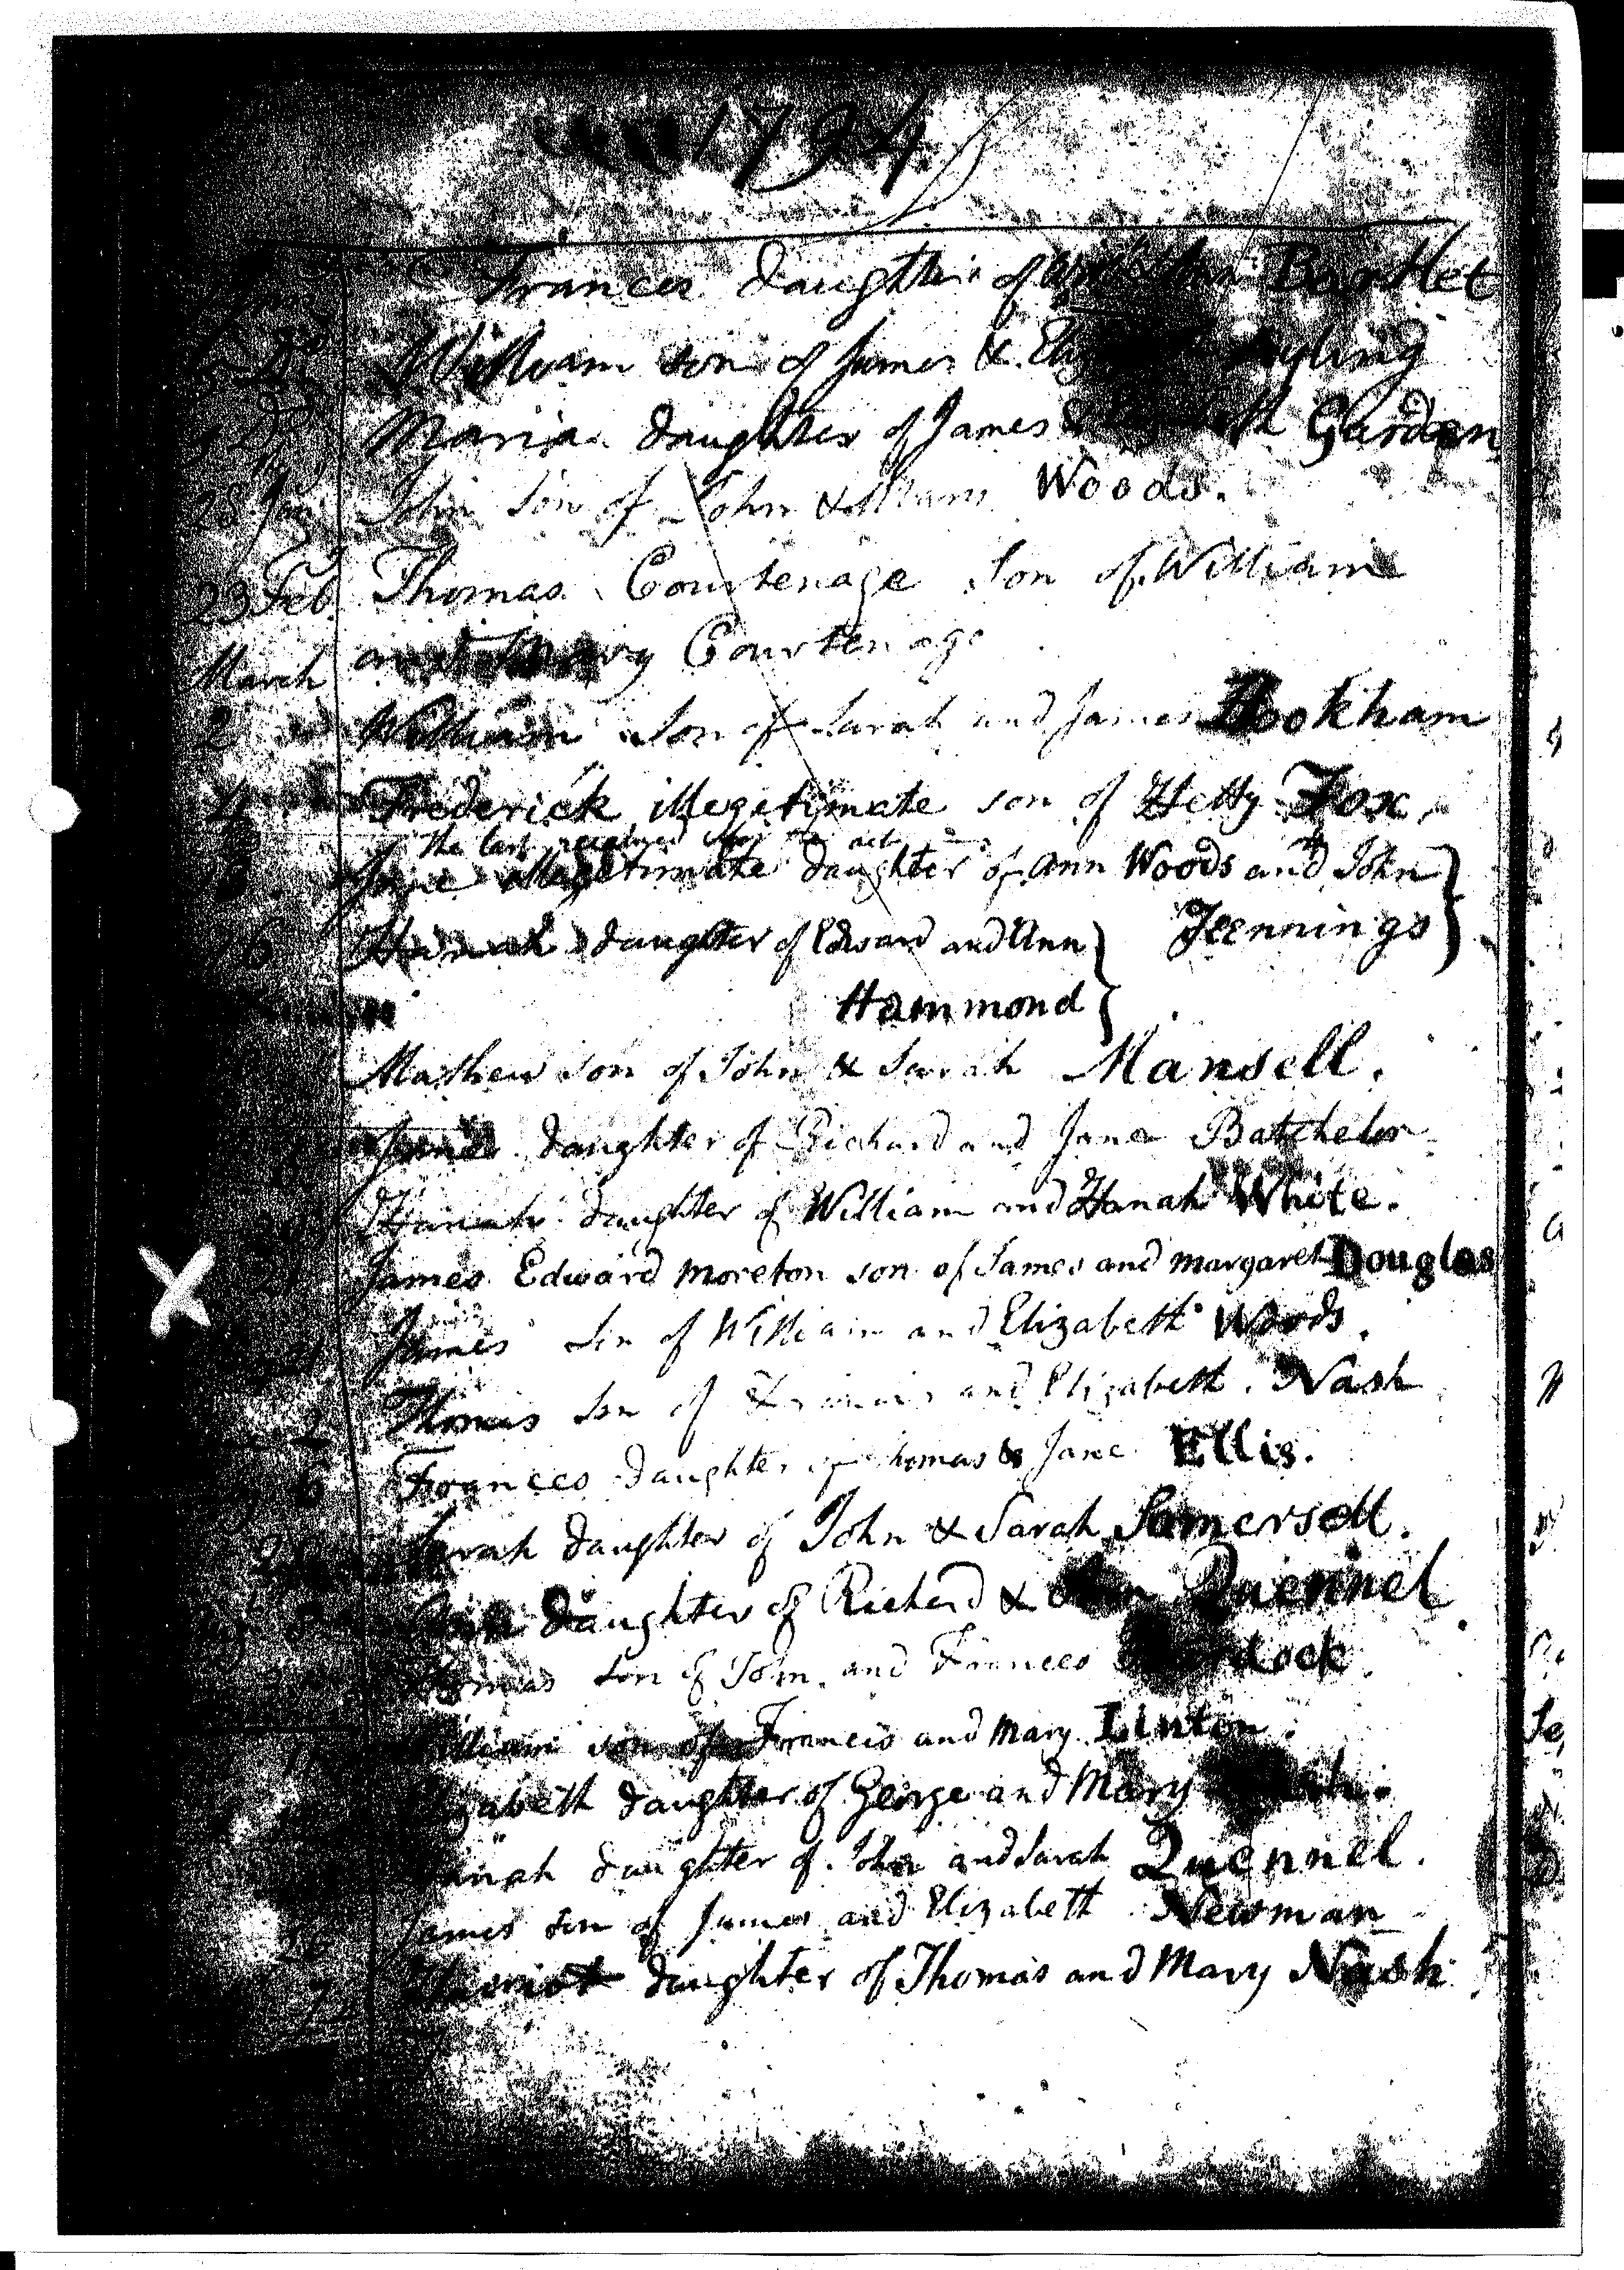 1794
Frances daughter of Ann Bartlet
Do William son of James & Eliz
Do Maria daughter of James & Elizabeth Garden
28 Jan John Son of John & Mary Woods.
23 Feb Thomas Courtenage Son of William
and Mary Courtenage
March
2 William Son of Sarah and James Bookham
4 Frederick illegitimate son of Hetty Fox,
the last received
Jane illegitimate daughter of Ann Woods and John
Jeennings
16 Hanah daughter of Edward and Ann
Hammond
Mathew son of John & Sarah Mansell.
daughter of Richard and Jane Batchelor
Hanah daughter of William and Hanah White.
James Edward Moreton son of James and Margaret Douglas
James Son of William and Elizabeth Woods.
2 Thomas Son of and Elizabeth Nash
6 Frances daughter of Thomas & Jane Ellis.
Sarah daughter of John & Sarah Somersett.
Ann daughter of Richard & Ann Quennel
Thomas son of John and Frances
William son of Francis and Mary Linton.
Elizabeth daughter of George and Mary
Hanah daughter of John and Sarah Quennel.
26 James son of James and Elizabeth Newman
7 Harriot daughter of Thomas and Mary Nash